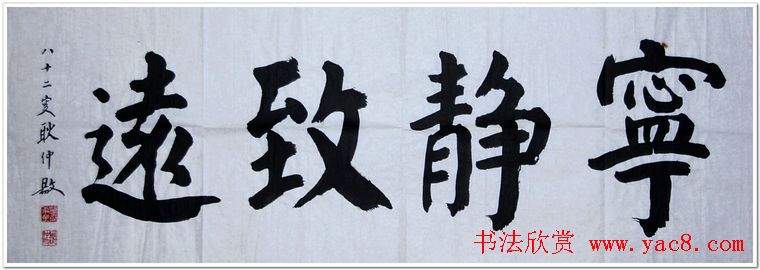 寧静致遠
八十二叟耿仲敭
书法欣赏 www.yac8.com